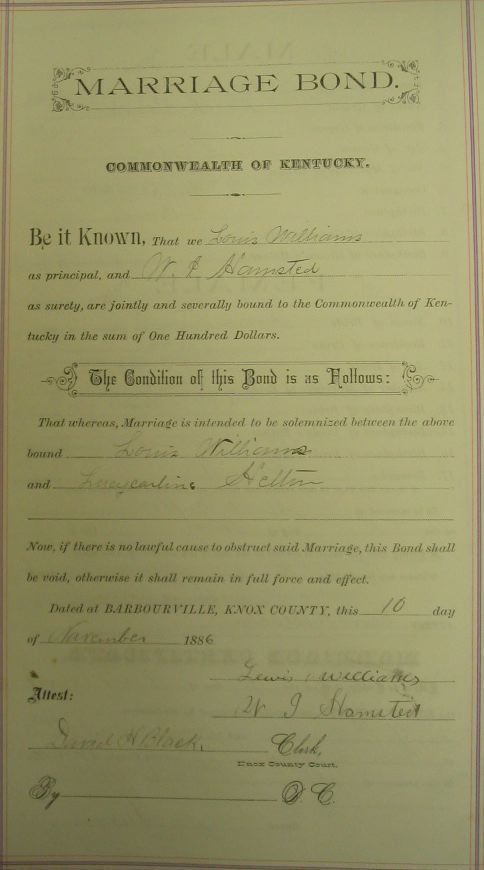 MARRIAGE BOND.
COMMONWEALTH OF KENTUCKY.
Be it Known, That we Louis Williams
as principal, and W. Hamsted
as surety, are jointly and severally bound to the Commonwealth of Ken-
tucky in the sum of One Hundred Dollars.
The Condition of this Bond is as Follows:
That whereas, Marriage is intended to be solemnized between the above
bound Louis Williams
and Helton
Now, if there is no lawful cause to obstruct said Marriage, this Bond shall
be void, otherwise it shall remain in full force and effect.
Dated at BARBOURVILLE, KNOX COUNTY, this 10 day
of November 1886
Lewis Williams
Attest:
W Hamsted
David H Black, Clerk,
Knox County Court.
By D. C.